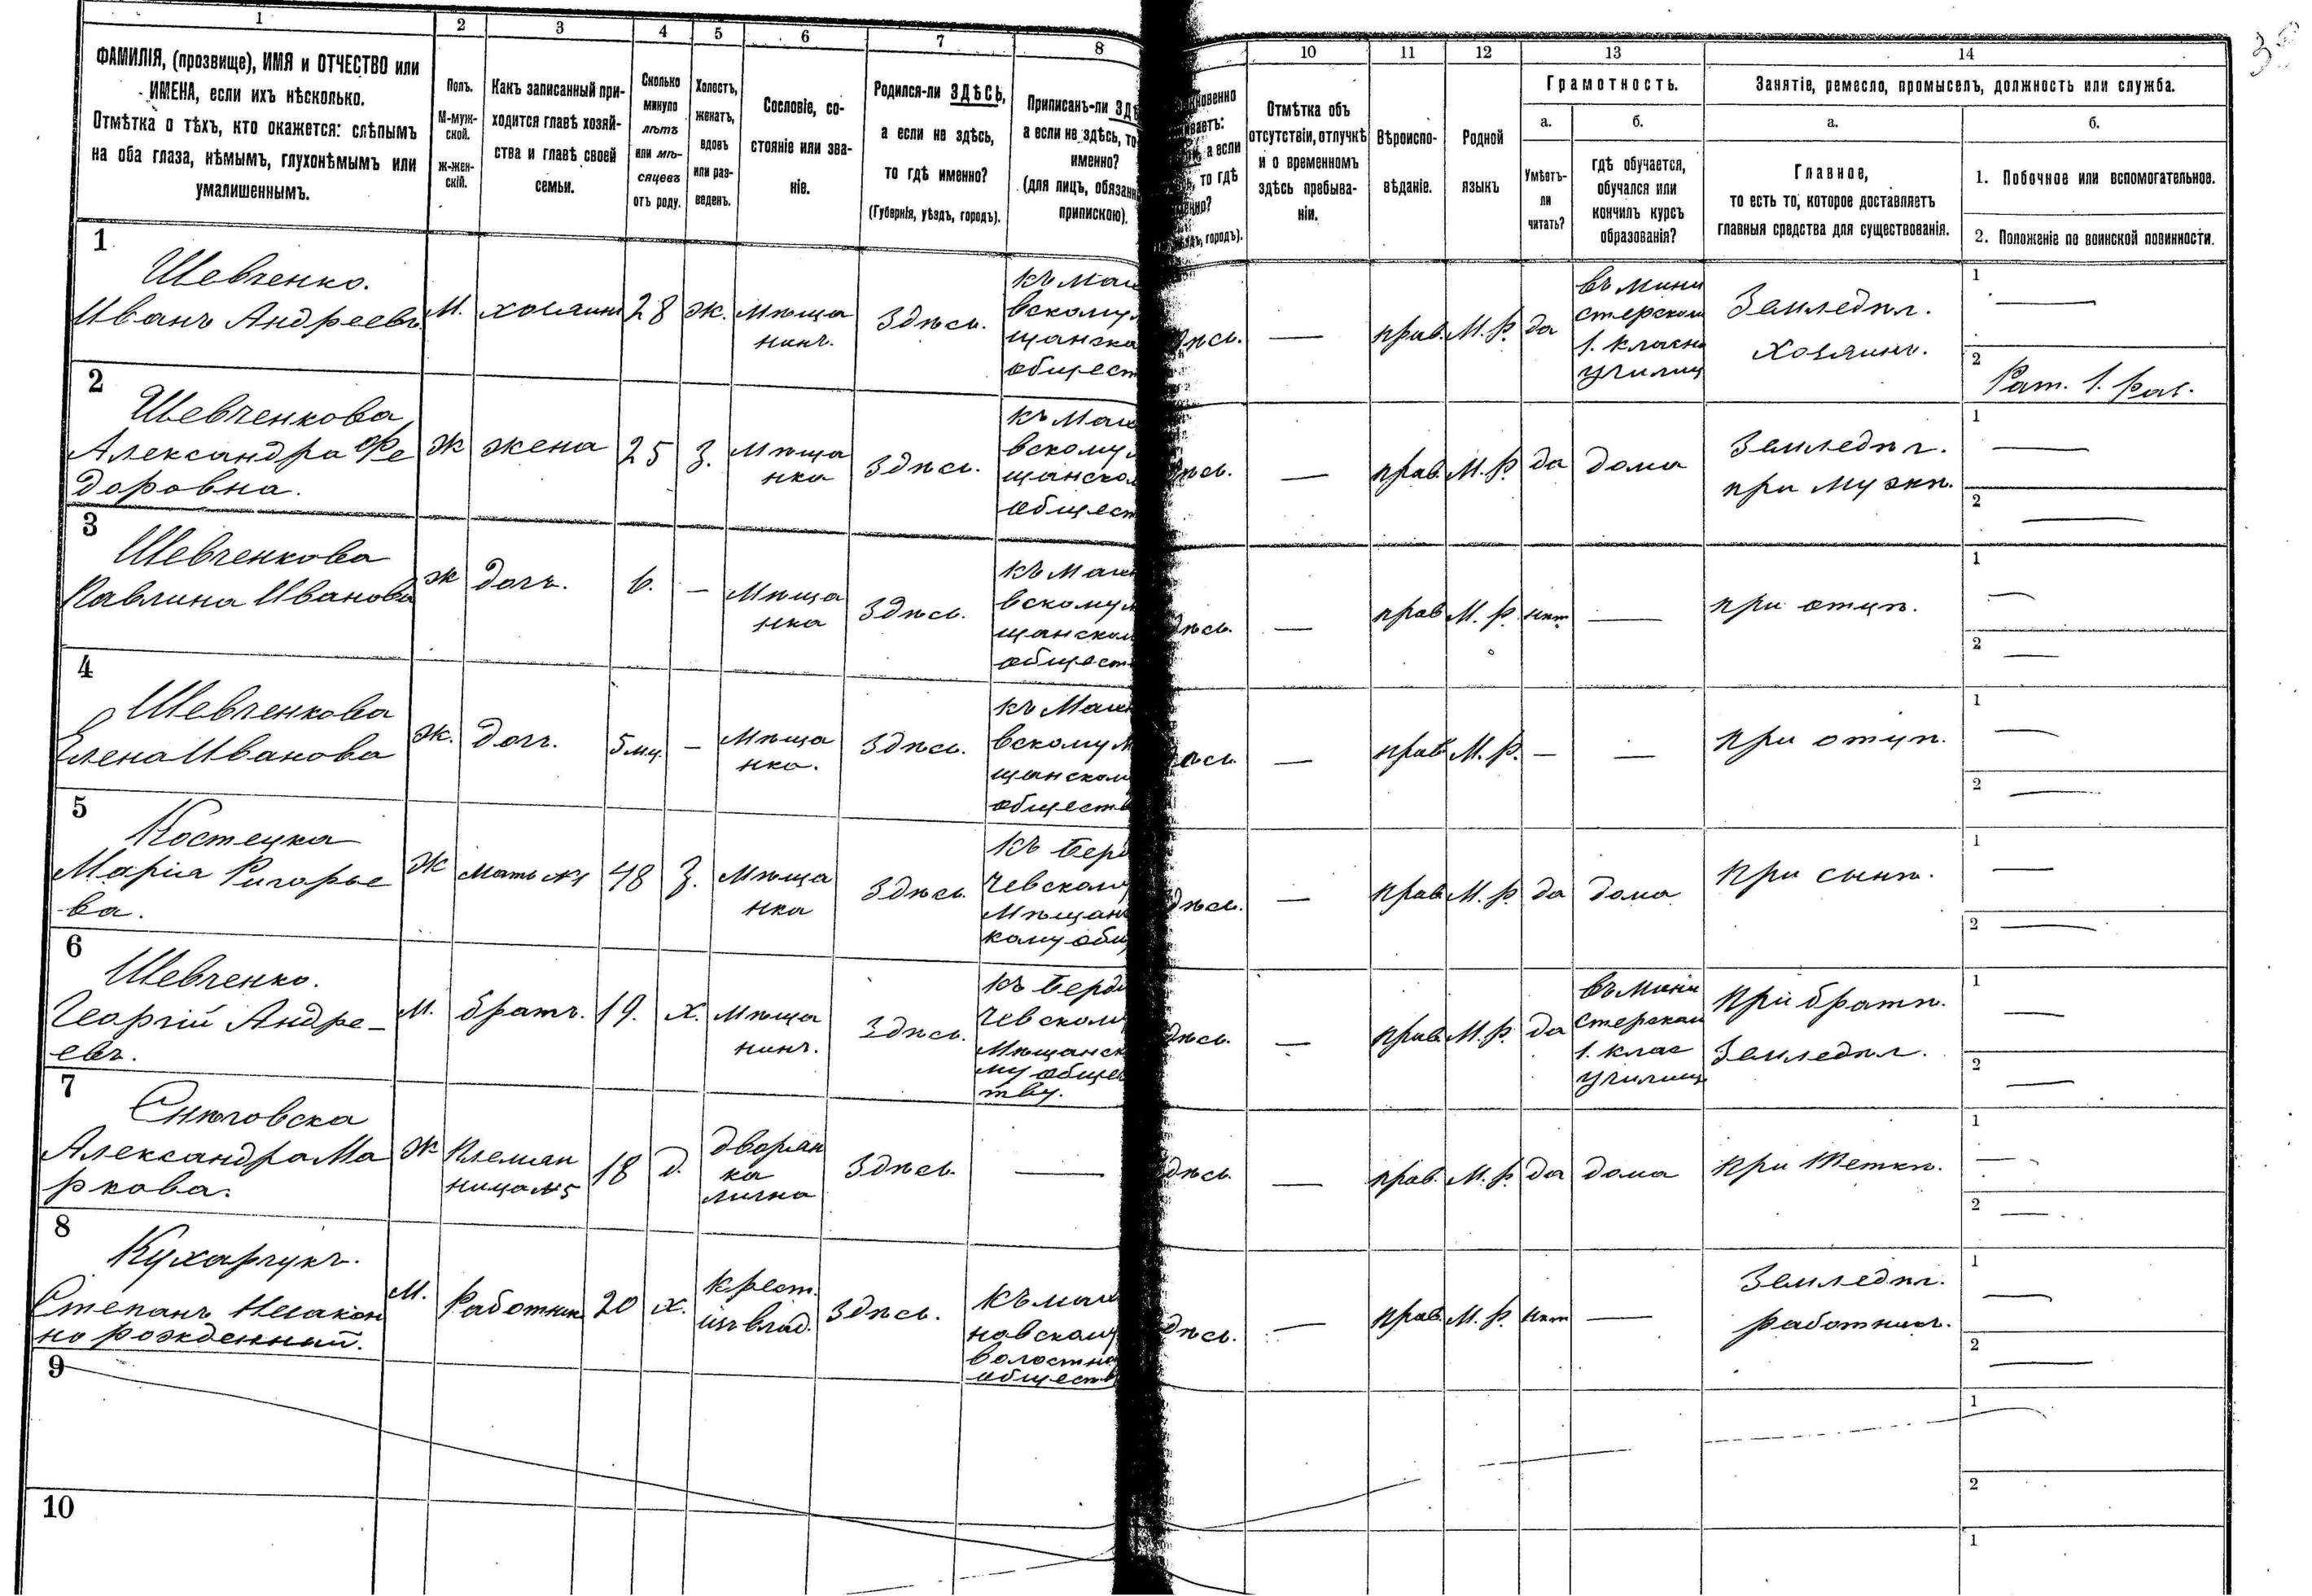 1
2
3
4
5
6
7
8
10
11
12
13
14
ФАМИЛІЯ, (прозвище), ИМЯ и ОТЧЕСТВО или
ИМЕНА, если ихъ нѣсколько.
Отмѣтка о тѣхъ, кто окажется: слѣпымъ
на оба глаза, нѣмымъ, глухонѣмымъ или
умалишеннымъ.
Полъ.
М-муж-
ской.
ж-жен-
скій.
Какъ записанный при-
ходится главѣ хозяй-
ства и главѣ своей
семьи.
Сколько
минуло
лѣтъ
или мѣ-
сяцевъ
отъ роду.
Холостъ,
женатъ,
вдовъ
или раз-
веденъ.
Сословіе, со-
стояніе или зва-
ніе.
Родился-ли ЗДѢСЬ,
а если не здѣсь,
то гдѣ именно?
(Губернія, уѣздъ, городъ).
Приписанъ-ли ЗДѢ
а если не здѣсь, то
именно?
(для лицъ, обязанн
припискою).
а если
то гдѣ
городъ).
Отмѣтка объ
отсутствіи, отлучкѣ
и о временномъ
здѣсь пребыва-
ніи.
Вѣроиспо-
вѣданіе.
Родной
языкъ
Грамотность.
а.
Умѣетъ-
ли
читать?
б.
гдѣ обучается,
обучался или
кончилъ курсъ
образованія?
Занятіе, ремесло, промыселъ, должность или служба.
а.
Главное,
то есть то, которое доставляетъ
главныя средства для существованія.
б.
1. Побочное или вспомогательное.
2. Положеніе по воинской повинности.
1
Шевченко.
Иванъ Андреевъ
М.
хозяинъ
28
ж.
Мѣща
нинъ.
Здѣсь.
къ Мах
вскому
щанско
общест
дѣсь.
—
прав.
М. Р.
да
въ мини
стерском
1. класн
училищ
Земледѣл.
хозяинъ.
1 —
2 Рат. 1. раз.
2
Шевченкова
Александра Фе
доровна.
Ж
жена
25
З.
Мѣща
нка
Здѣсь.
къ Мах
вскому
щанско
общест
дѣсь.
—
прав.
М. Р.
да
дома
Земледѣл.
при мужѣ.
1 —
2 —
3
Шевченкова
Павлина Иванова
ж
дочь.
6.
—
Мѣща
нка
Здѣсь.
къ Мах
вскому
щанском
общест
дѣсь.
—
прав
М. Р.
нѣт
—
при отцѣ.
1 —
2 —
4
Шевченкова
Елена Иванова
Ж.
дочь.
5 мц.
—
Мѣща
нка.
Здѣсь.
къ Мах
вскому м
щанском
обществ
дѣсь.
—
прав
М. Р.
—
—
при отцѣ.
1 —
2 —
5
Костецка
Марія Григорье
ва.
Ж
мать №1
48
З.
Мѣща
нка
Здѣсь
къ Берд
чевскому
Мѣщанс
кому общ
дѣсь.
—
прав
М. Р.
да
дома
при сынѣ.
1 —
2 —
6
Шевченко.
Георгій Андре-
евъ.
М.
братъ.
19.
х.
Мѣща
нинъ.
Здѣсь.
къ Берди
чевскому
Мѣщанск
му общес
тву.
дѣсь.
—
прав.
М. Р.
да
въ мини
стерском
1. клас
училищ
при братѣ.
Земледѣл.
1 —
2 —
7
Снѣговска
Александра Ма
ркова.
Ж
племян
ница №5
18
д.
дворян
ка
лична
Здѣсь.
—
дѣсь.
—
прав.
М. Р.
да
дома
при теткѣ.
1 —
2 —
8
Кухарчукъ.
Степанъ незакон
но рожденный.
М.
работник
20
х.
крест.
изъ влад.
Здѣсь.
къ мах
новскому
волостно
обществ
дѣсь.
—
прав.
М. Р.
нѣт
—
Земледѣл.
работникъ.
1 —
2 —
9
1
2
10
1